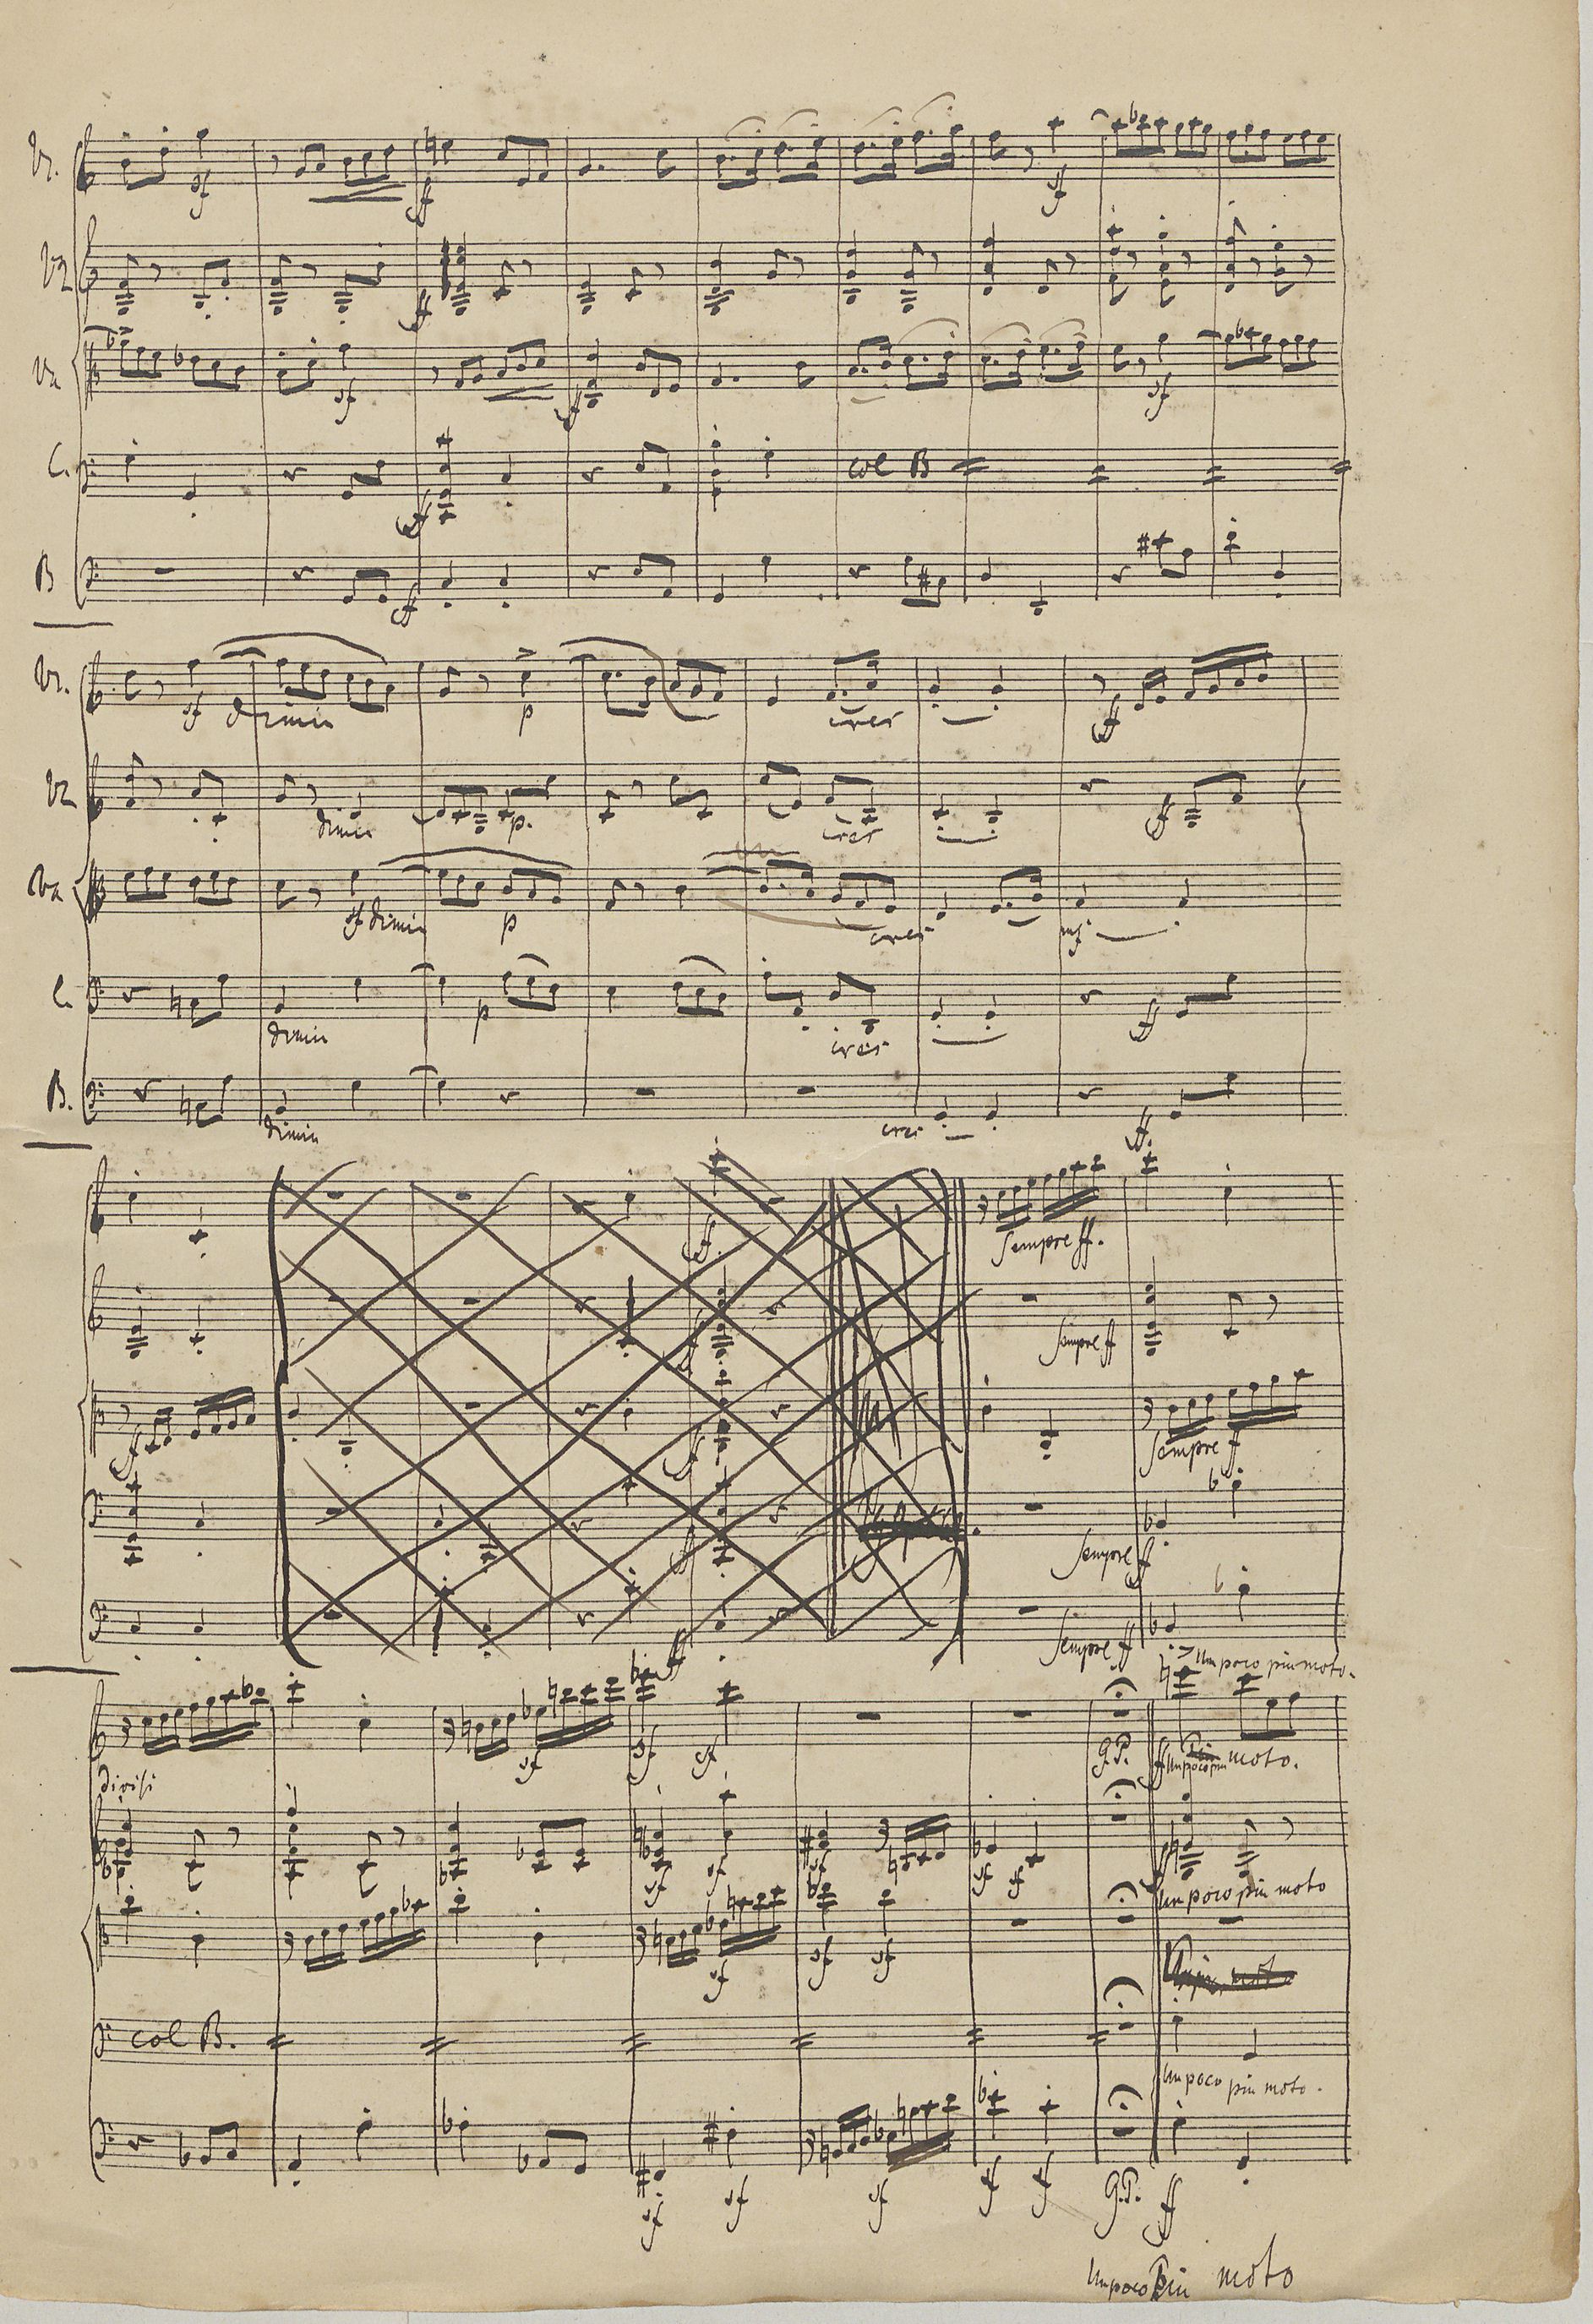 V1.
sf
ff
sf
V2
ff
Va
sf
ff
sf
C.
ff
col B
B
ff
V1.
sf dimin
p
cres
ff
V2
dimin
p.
cres
ff
Va
sf dimin
p
cres
mf
C.
dimin
p
cres
ff
B.
dimin
cres
ff.
ff.
sempre ff.
ff
sempre ff
ff
ff
sempre ff
ff
sempre ff
ff
sempre ff
Un poco più moto.
sf
sf
sf
G.P.
ff Un poco più moto.
divisi
sf
sf
sf
sf
sf
ff
Un poco più moto
sf
sf
sf
col B.
Un poco più moto.
sf
sf
sf
sf
sf
G.P.
ff
Un poco più moto